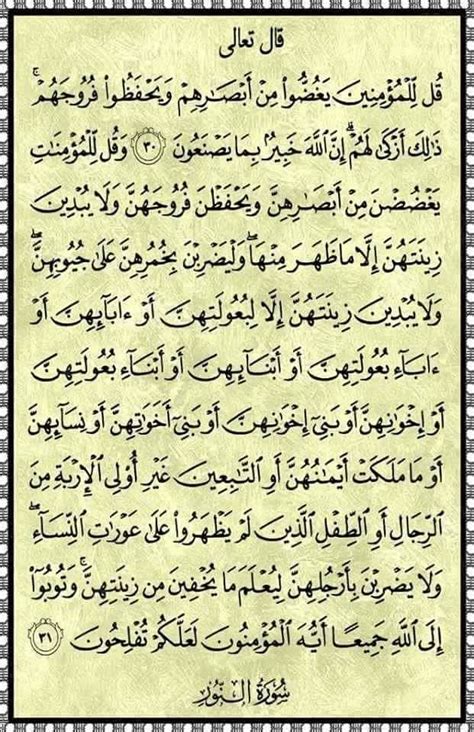 قال تعالى
قُل لِّلْمُؤْمِنِينَ يَغُضُّوا۟ مِنْ أَبْصَـٰرِهِمْ وَيَحْفَظُوا۟ فُرُوجَهُمْ ۚ
ذَٰلِكَ أَزْكَىٰ لَهُمْ ۗ إِنَّ ٱللَّهَ خَبِيرٌۢ بِمَا يَصْنَعُونَ ٣٠ وَقُل لِّلْمُؤْمِنَـٰتِ
يَغْضُضْنَ مِنْ أَبْصَـٰرِهِنَّ وَيَحْفَظْنَ فُرُوجَهُنَّ وَلَا يُبْدِينَ
زِينَتَهُنَّ إِلَّا مَا ظَهَرَ مِنْهَا ۖ وَلْيَضْرِبْنَ بِخُمُرِهِنَّ عَلَىٰ جُيُوبِهِنَّ ۖ
وَلَا يُبْدِينَ زِينَتَهُنَّ إِلَّا لِبُعُولَتِهِنَّ أَوْ ءَابَآئِهِنَّ أَوْ
ءَابَآءِ بُعُولَتِهِنَّ أَوْ أَبْنَآئِهِنَّ أَوْ أَبْنَآءِ بُعُولَتِهِنَّ
أَوْ إِخْوَٰنِهِنَّ أَوْ بَنِىٓ إِخْوَٰنِهِنَّ أَوْ بَنِىٓ أَخَوَٰتِهِنَّ أَوْ نِسَآئِهِنَّ
أَوْ مَا مَلَكَتْ أَيْمَـٰنُهُنَّ أَوِ ٱلتَّـٰبِعِينَ غَيْرِ أُو۟لِى ٱلْإِرْبَةِ مِنَ
ٱلرِّجَالِ أَوِ ٱلطِّفْلِ ٱلَّذِينَ لَمْ يَظْهَرُوا۟ عَلَىٰ عَوْرَٰتِ ٱلنِّسَآءِ ۖ
وَلَا يَضْرِبْنَ بِأَرْجُلِهِنَّ لِيُعْلَمَ مَا يُخْفِينَ مِن زِينَتِهِنَّ ۚ وَتُوبُوٓا۟
إِلَى ٱللَّهِ جَمِيعًا أَيُّهَ ٱلْمُؤْمِنُونَ لَعَلَّكُمْ تُفْلِحُونَ ٣١
سُورَةُ النُّورِ